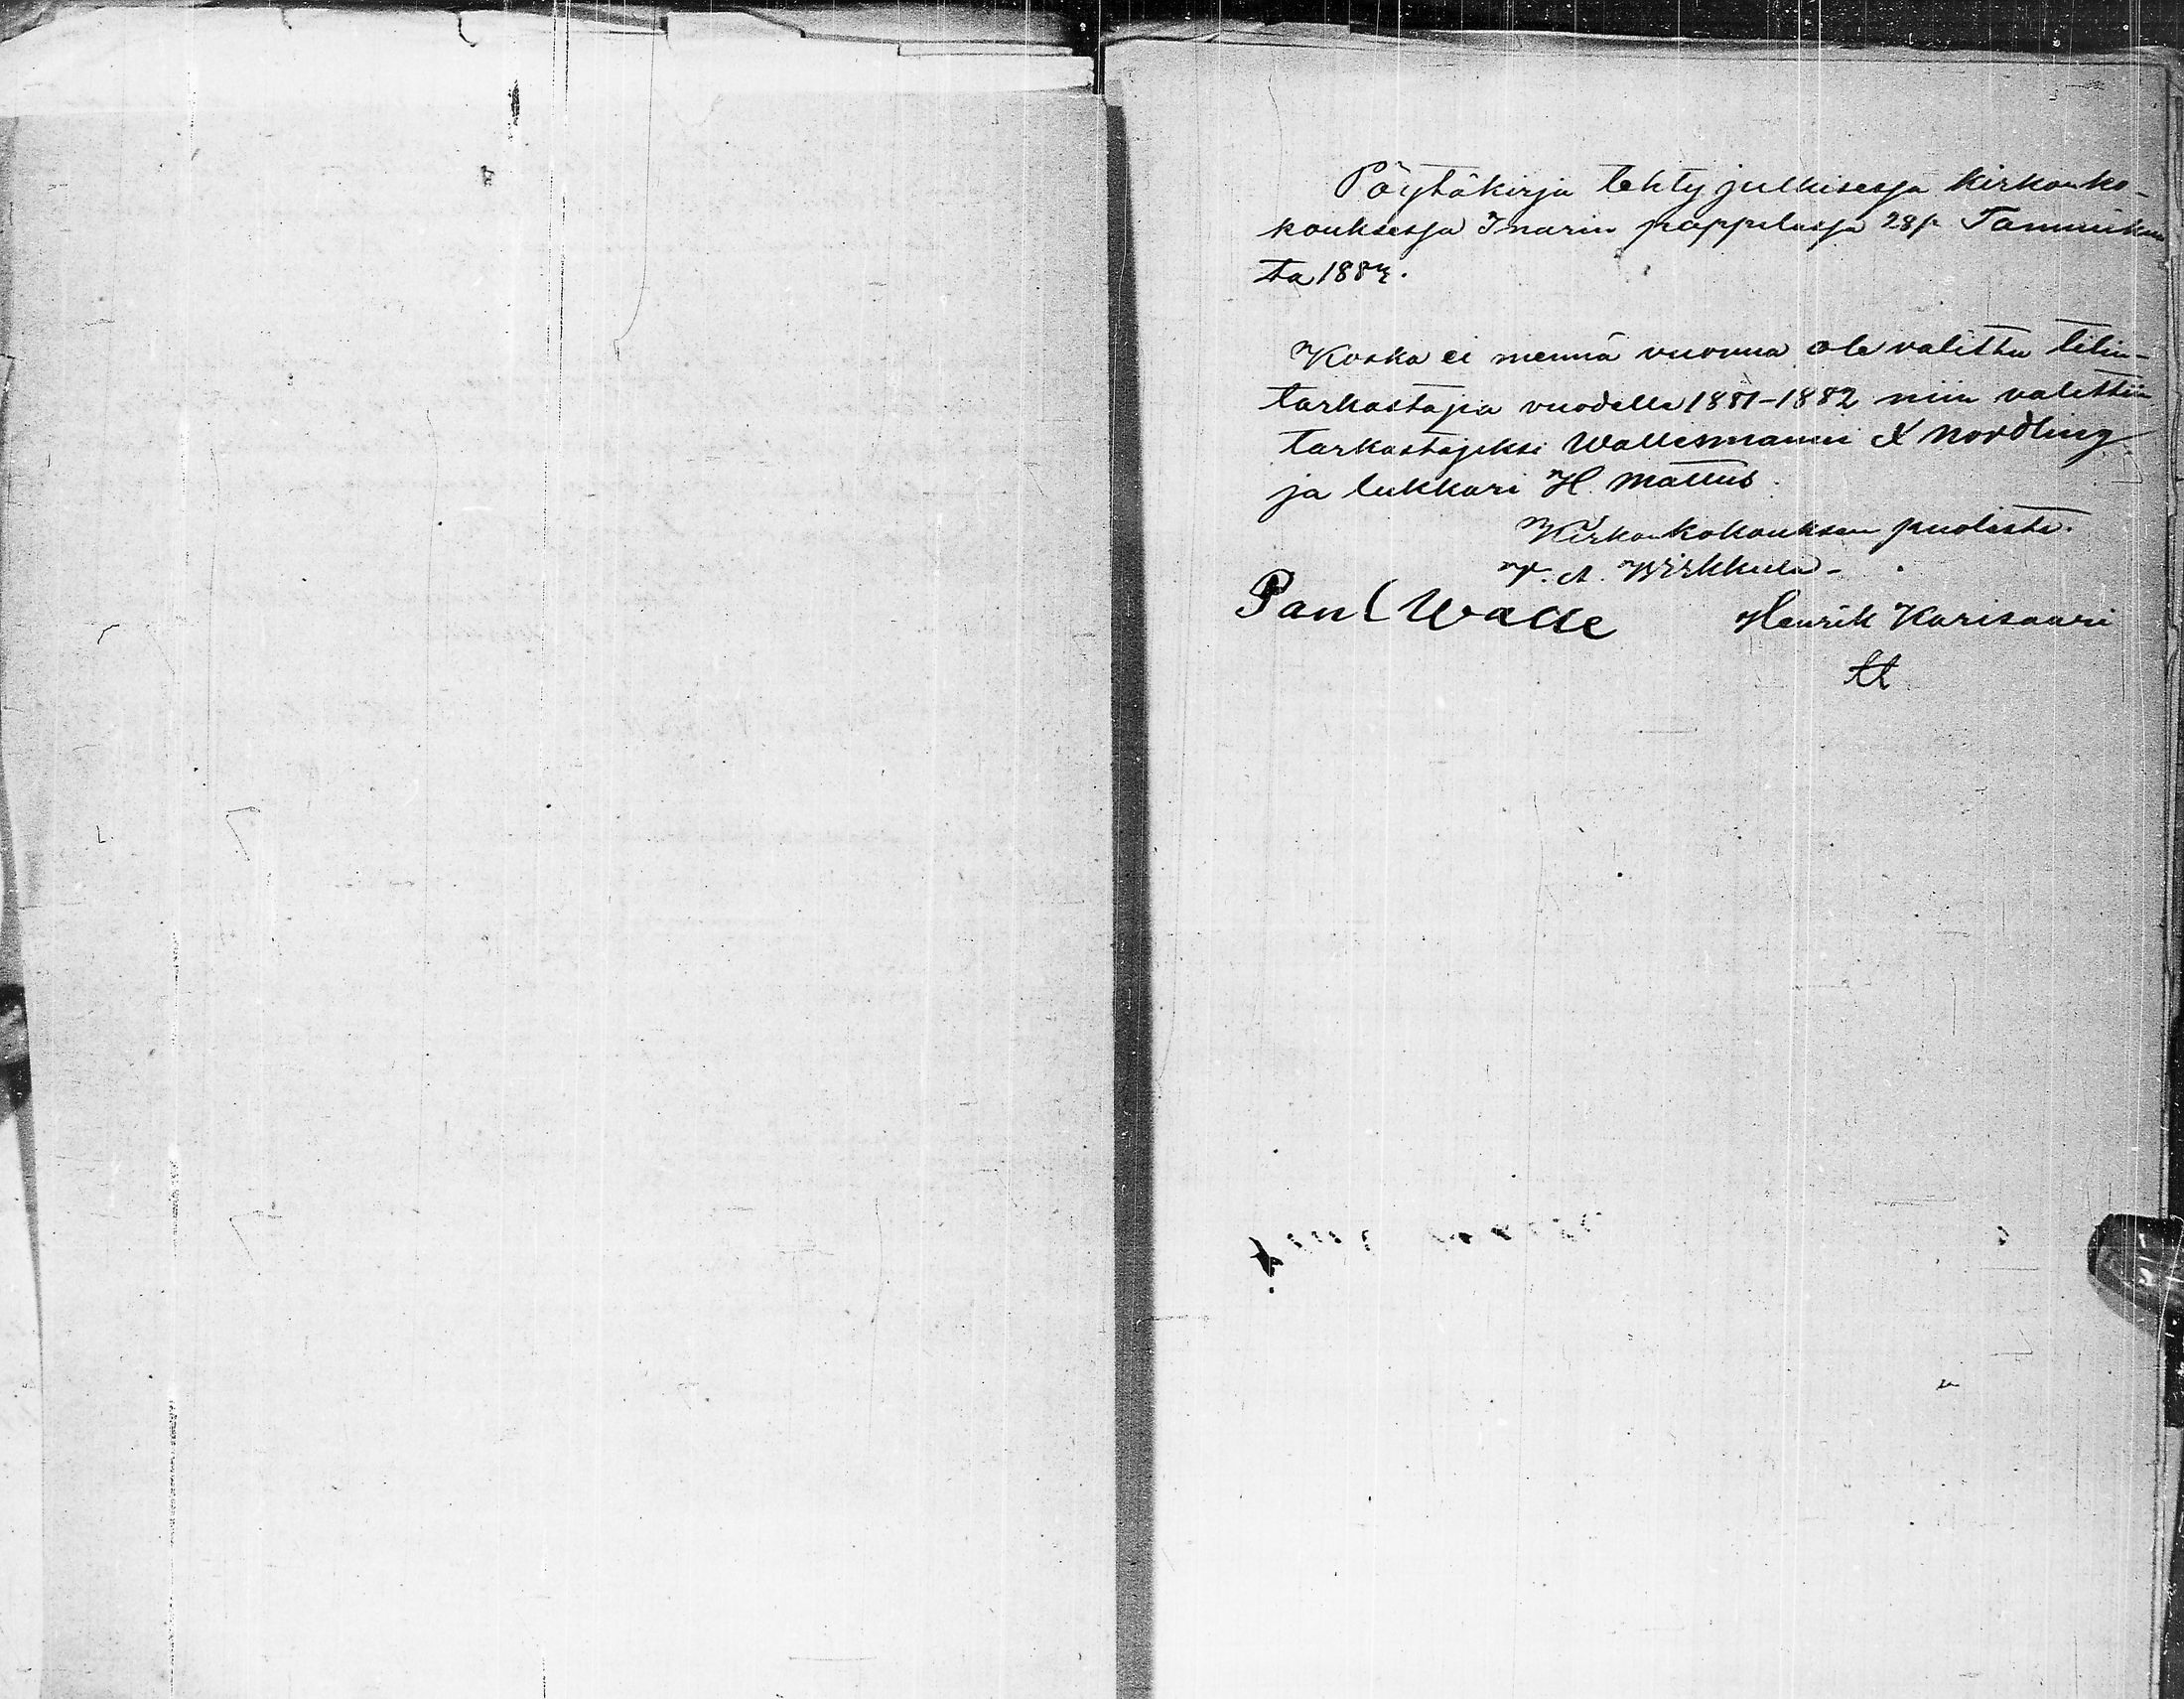 Pöytäkirja tehty julkisessa kirkonko-
kouksessa Inarin pappilassa 28 p. Tammikuu
ta 1883.
Koska ei mennä vuonna ole valittu tilin-
tarkastajia vuodelle 1881-1882 niin valittiin
tarkastajiksi Wallesmanni A Nordling
ja lukkari H. Mattus.
Kirkonkokouksen puolesta.
V. A. Wirkkula
Paul Walle Henrik Karisaari